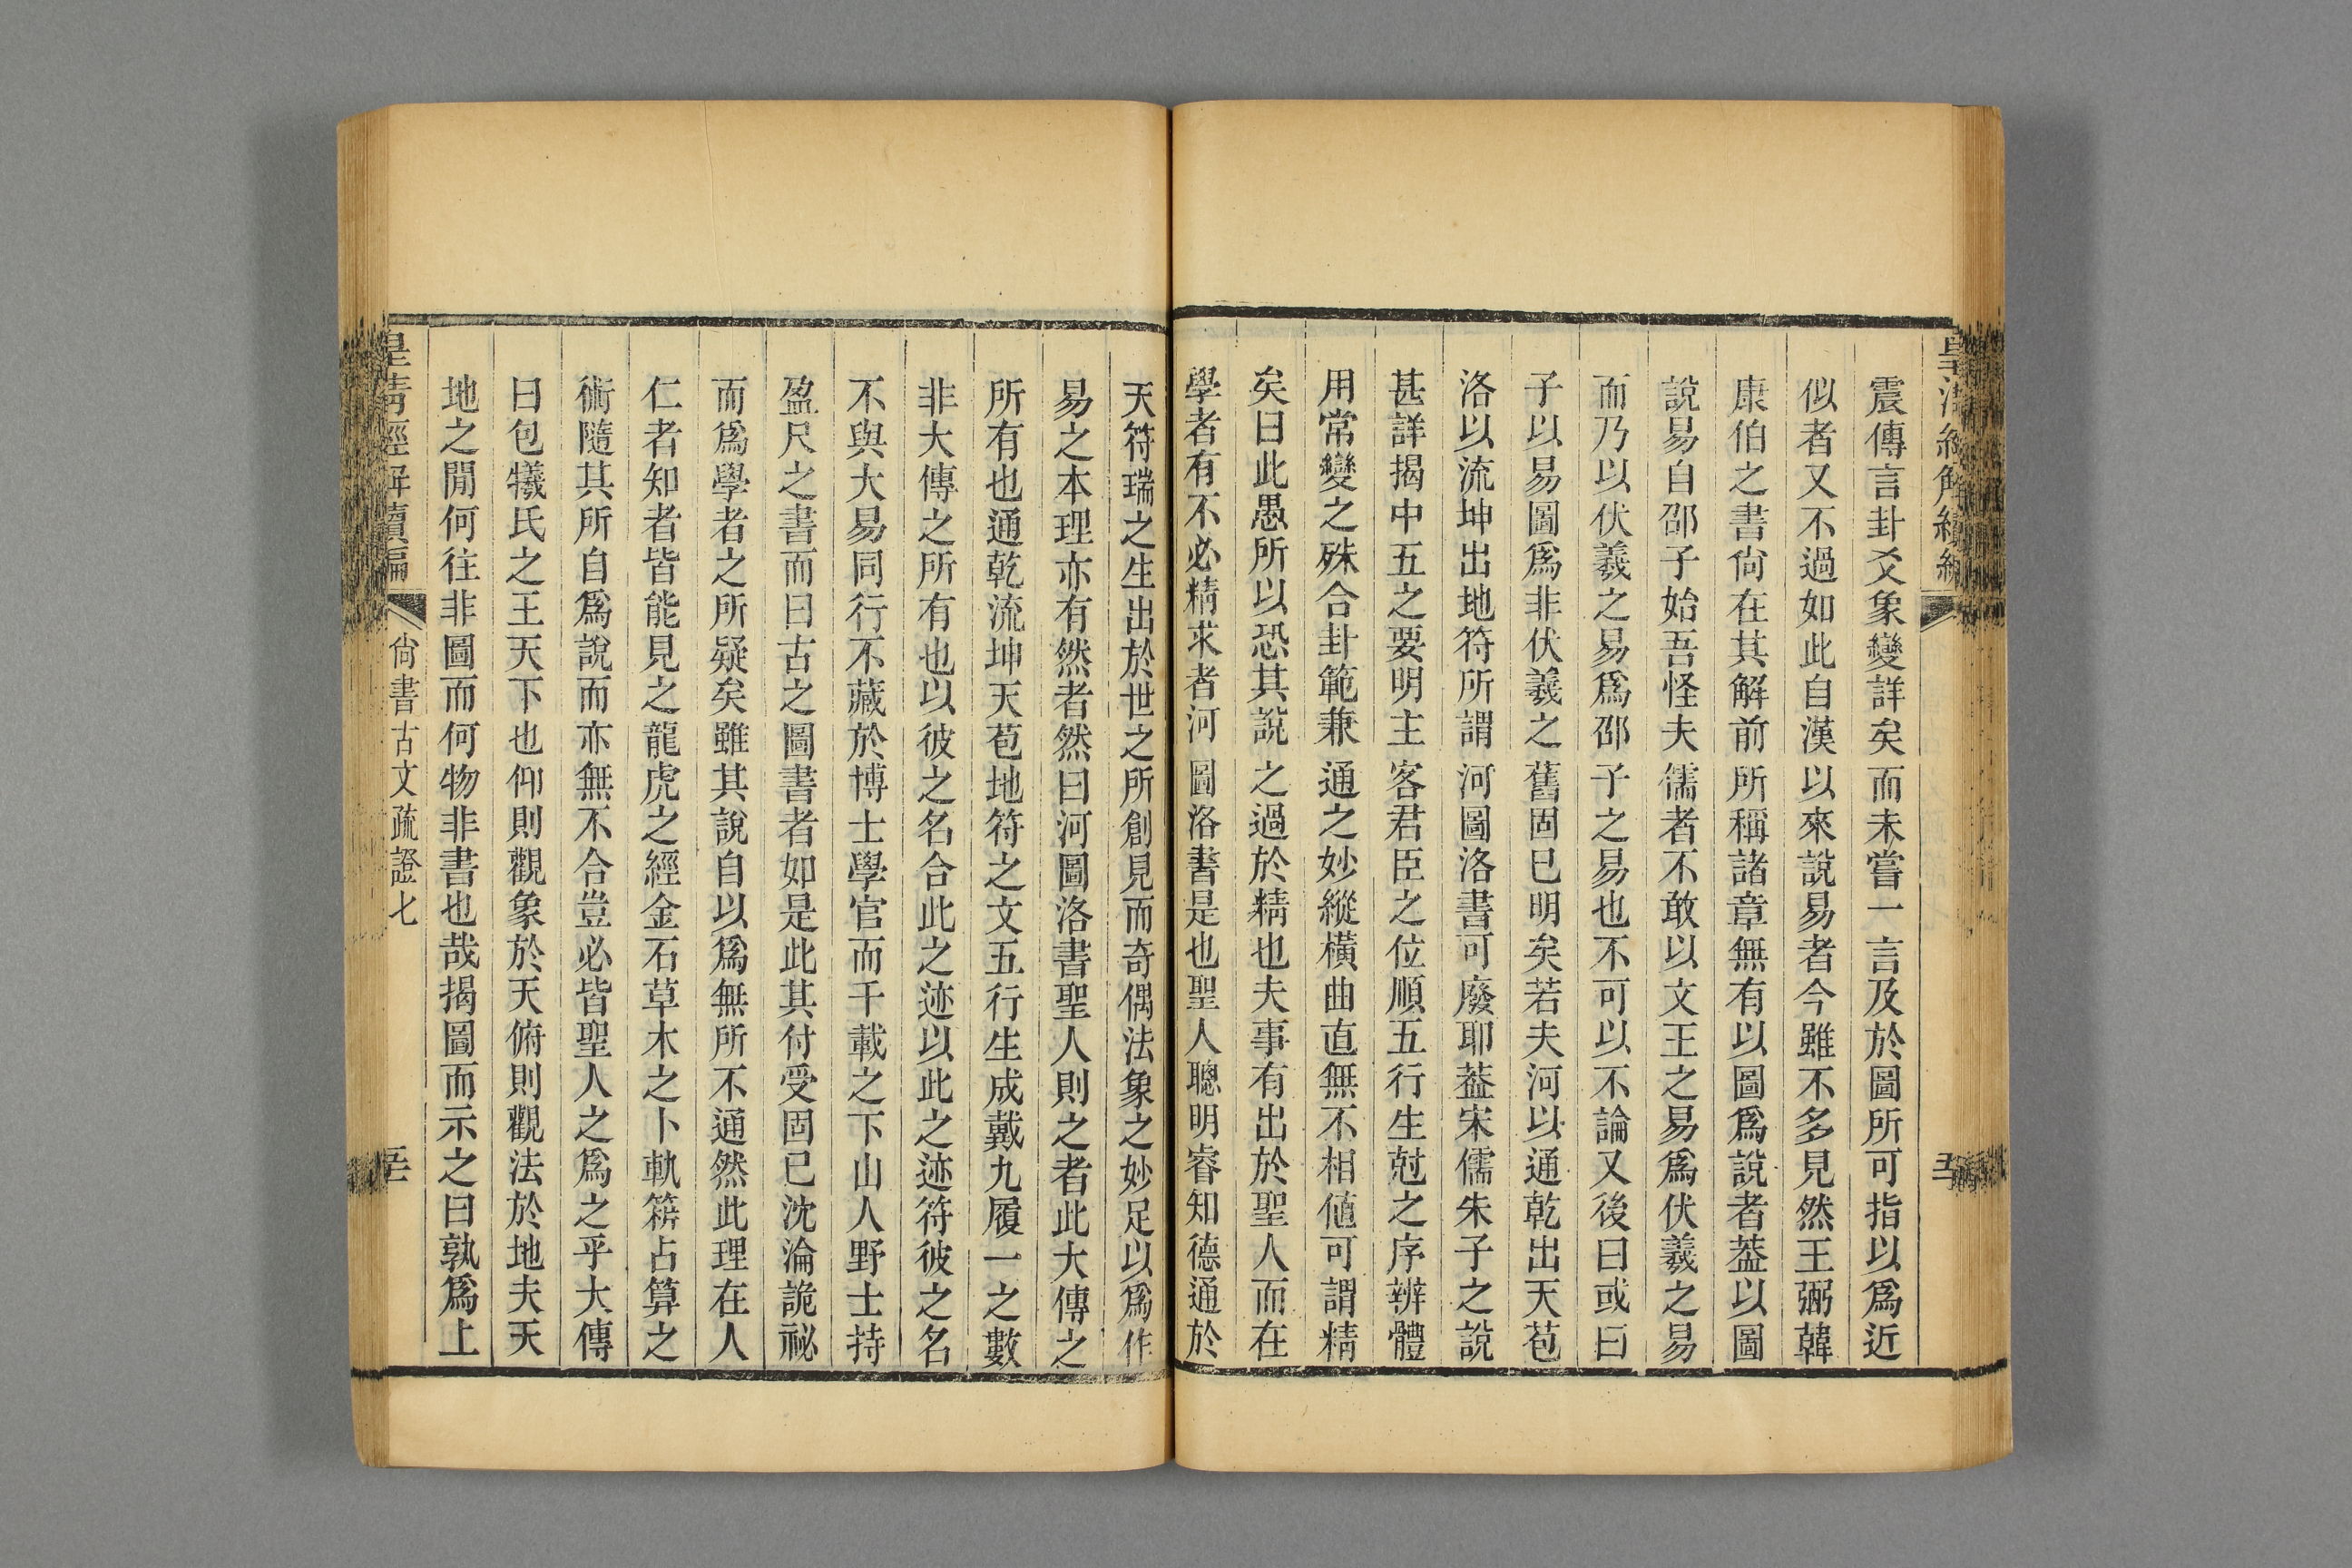 震傳言卦爻象變詳矣而未嘗一言及於圖所可指以爲近
似者又不過如此自漢以來說易者今雖不多見然王弼韓
康伯之書尙在其解前所稱諸章無有以圖爲說者葢以圖
說易自邵子始吾怪夫儒者不敢以文王之易爲伏羲之易
而乃以伏羲之易爲邵子之易也不可以不論又後曰或曰
子以易圖爲非伏羲之舊固已明矣若夫河以通乾出天苞
洛以流坤出地符所謂河圖洛書可廢耶葢宋儒朱子之說
甚詳揭中五之要明主客君臣之位順五行生尅之序辨體
用常變之殊合卦範兼通之妙縱橫曲直無不相値可謂精
矣曰此愚所以恐其說之過於精也夫事有出於聖人而在
學者有不必精求者河圖洛書是也聖人聰明睿知德通於
天符瑞之生出於世之所創見而奇偶法象之妙足以爲作
易之本理亦有然者然曰河圖洛書聖人則之者此大傳之
所有也通乾流坤天苞地符之文五行生成戴九履一之數
非大傳之所有也以彼之名合此之迹以此之迹符彼之名
不與大易同行不藏於博士學官而千載之下山人野士持
盈尺之書而曰古之圖書者如是此其付受固已沈淪詭祕
而爲學者之所疑矣雖其說自以爲無所不通然此理在人
仁者知者皆能見之龍虎之經金石草木之卜軌簭占算之
術隨其所自爲說而亦無不合豈必皆聖人之爲之乎大傳
曰包犧氏之王天下也仰則觀象於天俯則觀法於地夫天
地之閒何往非圖而何物非書也哉揭圖而示之曰孰爲上
皇清經解續編
尙書古文疏證七